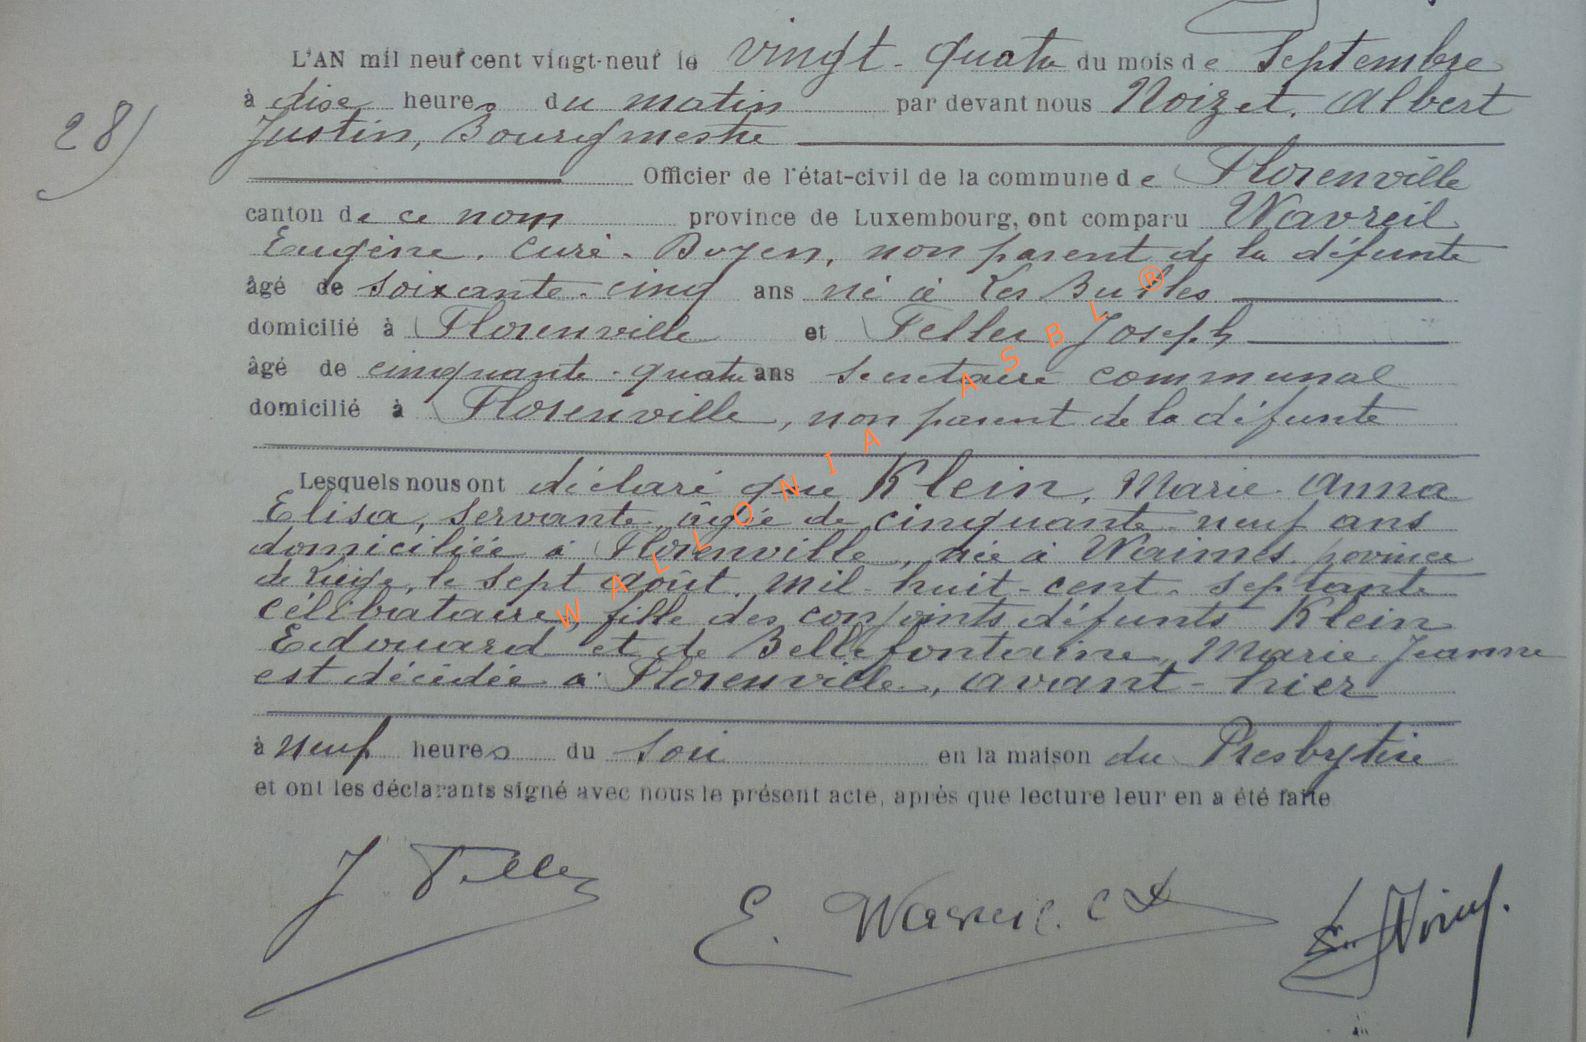 L'AN mil neuf cent vingt-neuf le vingt-quatre du mois de Septembre
à dise heures du matin par devant nous Noizet, Albert
28) Justin, Bourgmestre
Officier de l'état-civil de la commune de Florenville
canton de ce nom province de Luxembourg, ont comparu Wavreil
Eugène, Curé-Doyen, non parent de la défunte
âgé de soixante-cinq ans né à Les Bulles
domicilié à Florenville et Feller Joseph
âgé de cinquante-quatre ans secrétaire communal
domicilié à Florenville, non parent de la défunte
Lesquels nous ont déclaré que Klein, Marie-Anna
Elisa, servante, âgée de cinquante-neuf ans
domiciliée à Florenville, née à Waimes, province
de Liège, le sept août mil-huit-cent-septante
célibataire, fille des conjoints défunts Klein
Edouard et de Bellefontaine, Marie-Jeanne
est décédée à Florenville, avant-hier
à neuf heures du soir en la maison du Presbytère
et ont les déclarants signé avec nous le présent acte, après que lecture leur en a été faite
J. Feller
E. Wavreil
Noizet
WALLONIA ASBL ®